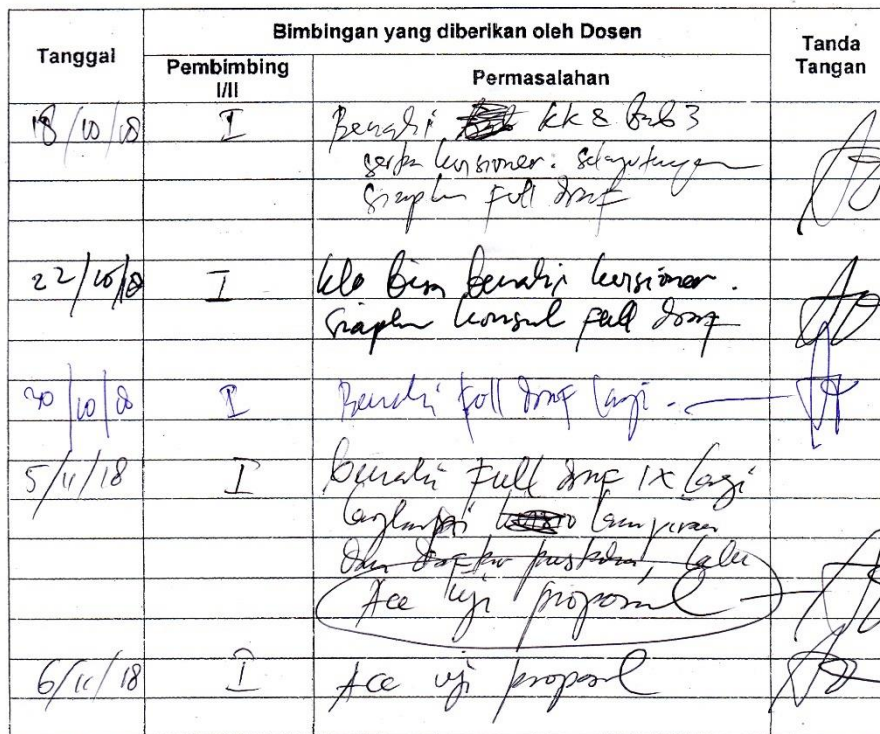 Tanggal
Bimbingan yang diberikan oleh Dosen
Tanda Tangan
Pembimbing I/II
Permasalahan
18/10/18 I Benahi kk & Bab 3
serta kuisioner. Selanjutnya
siapkan full draf
22/10/18 I klo bisa benahi kuisioner.
siapkan konsul full draf
30/10/18 I Benahi full draf lagi.
5/11/18 I benahi Full draf 1x lagi
lengkapi lampiran
dan daftar pustaka, lalu
Acc uji proposal
6/11/18 I Acc uji proposal